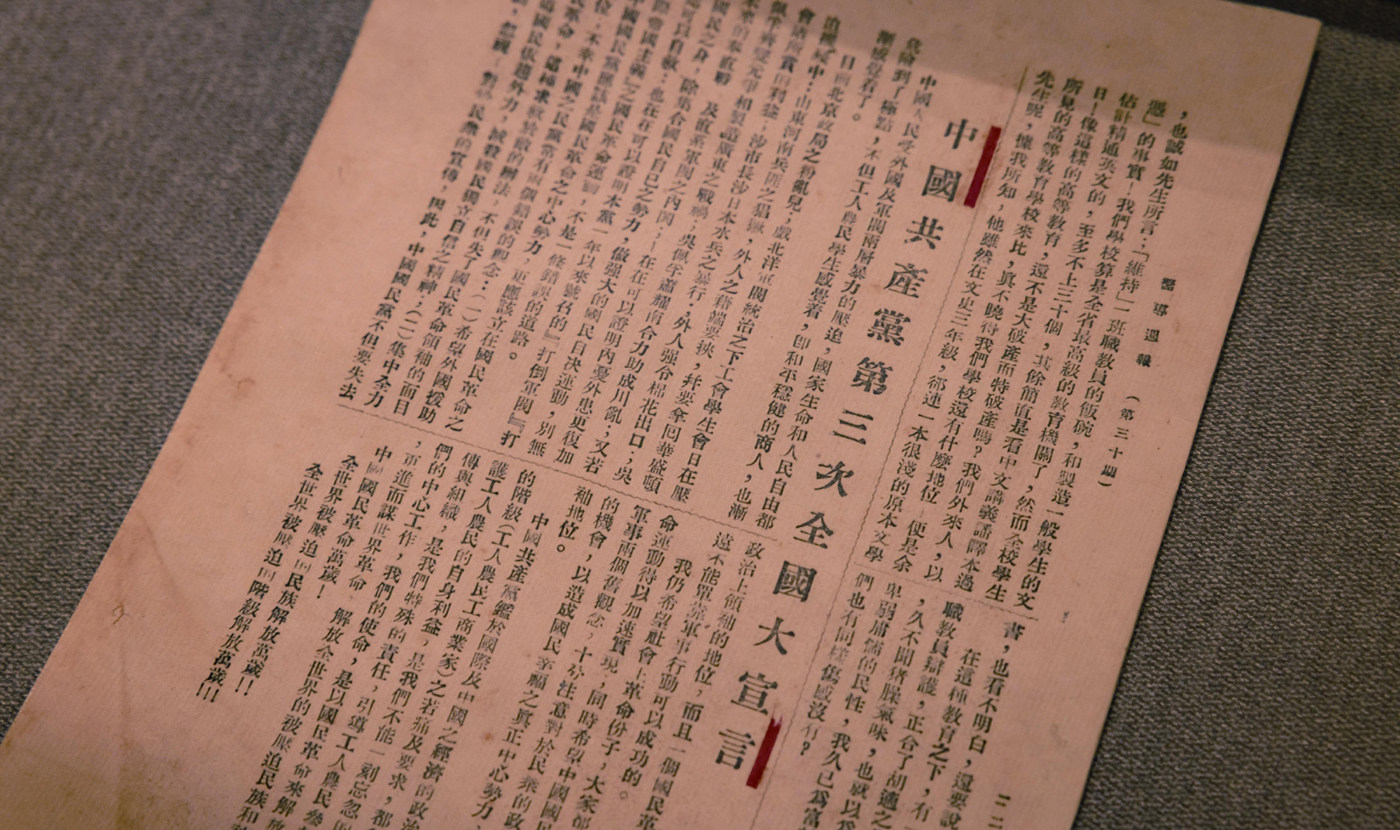 嚮導週報 （第三十期）
，也誠如先生所言：「維持」一班職教員的飯碗，和製造一般學生的文
憑」的事實！我們學校算是全省最高級的教育機關了，然而全校學生
估計精通英文的，至多不上三十個，其餘簡直是看中文講義潘譯本過
日！像這樣的高等教育，還不是大破產而特破產嗎？我們外來人，以
所見的高等教育學校來比，眞不曉得我們學校還有什麼地位！便是余
先生呢，據我所知，他雖然在文史三年級，郤連一本很淺的原本文學
書，也看不明白，還要說
在這種教育之下，有
職教員辯護，正合了胡適之
，久不聞豬臊氣味，也就以爲
卑弱庸懦的民性，我久已爲富
們也有同樣傷感沒有？
中國共產黨第三次全國大宣言
中國人民受外國及軍閥兩層暴力的壓迫，國家生命和人民自由都
危險到了極點，不但工人農民學生感覺着，卽和平穩健的商人，也漸
漸感覺着了。
目前北京政局之紛亂兒戲；北洋軍閥統治之下工會學生會日在壓
迫中；山東河南兵匪之猖獗，外人之藉端要挾，幷要拿囘華盛頓
會議所賞的利益；沙市長沙日本水兵之暴行，外人强令棉花出口；吳
佩孚蕭耀南合力助成川亂，又若
及直系軍閥之內閧；在在可以證明內憂外患更復加
國民之身，除集合國民自己之勢力，做强大的國民自決運動，別無
可以自救；也在在可以證明本黨一年以來號召的『打倒軍閥』『打
國際帝國主義』之國民革命運動，不是一條錯誤的道路。
中國國民黨應該是國民革命之中心勢力，更應該立在國民革命之
位，不幸中國之民黨常有兩個錯誤的觀念：（一）希望外國援助
民革命，這種求救於敵的辦法，不但失了國民革命領袖的面目
國民依賴外力，減殺國民獨立自信之精神；（二）集中全力
，忽視了對於民衆的宣傳，因此，中國國民黨不但要失去
政治上領袖的地位，而且一個國民革
還不能單靠軍事行動可以成功的。
我們仍希望社會上革命份子，大家都
命運動得以加速實現；同時希望中國國
軍事兩個舊觀念，十分注意對於民衆的政
的機會，以造成國民幸福之眞正中心勢力，
袖地位。
中國共產黨鑑於國際及中國之經濟的政治
的階級（工人農民工商業家）之苦痛及要求，都
護工人農民的自身利益，是我們不能一刻忘忽
傳與組織，是我們特殊的責任；引導工人農民參
們的中心工作；我們的使命，是以國民革命來解放
，更進而謀世界革命，解放全世界的被壓迫民族和
中國國民革命萬歲！
全世界被壓迫的民族解放萬歲！！
全世界被壓迫的階級解放萬歲！！！